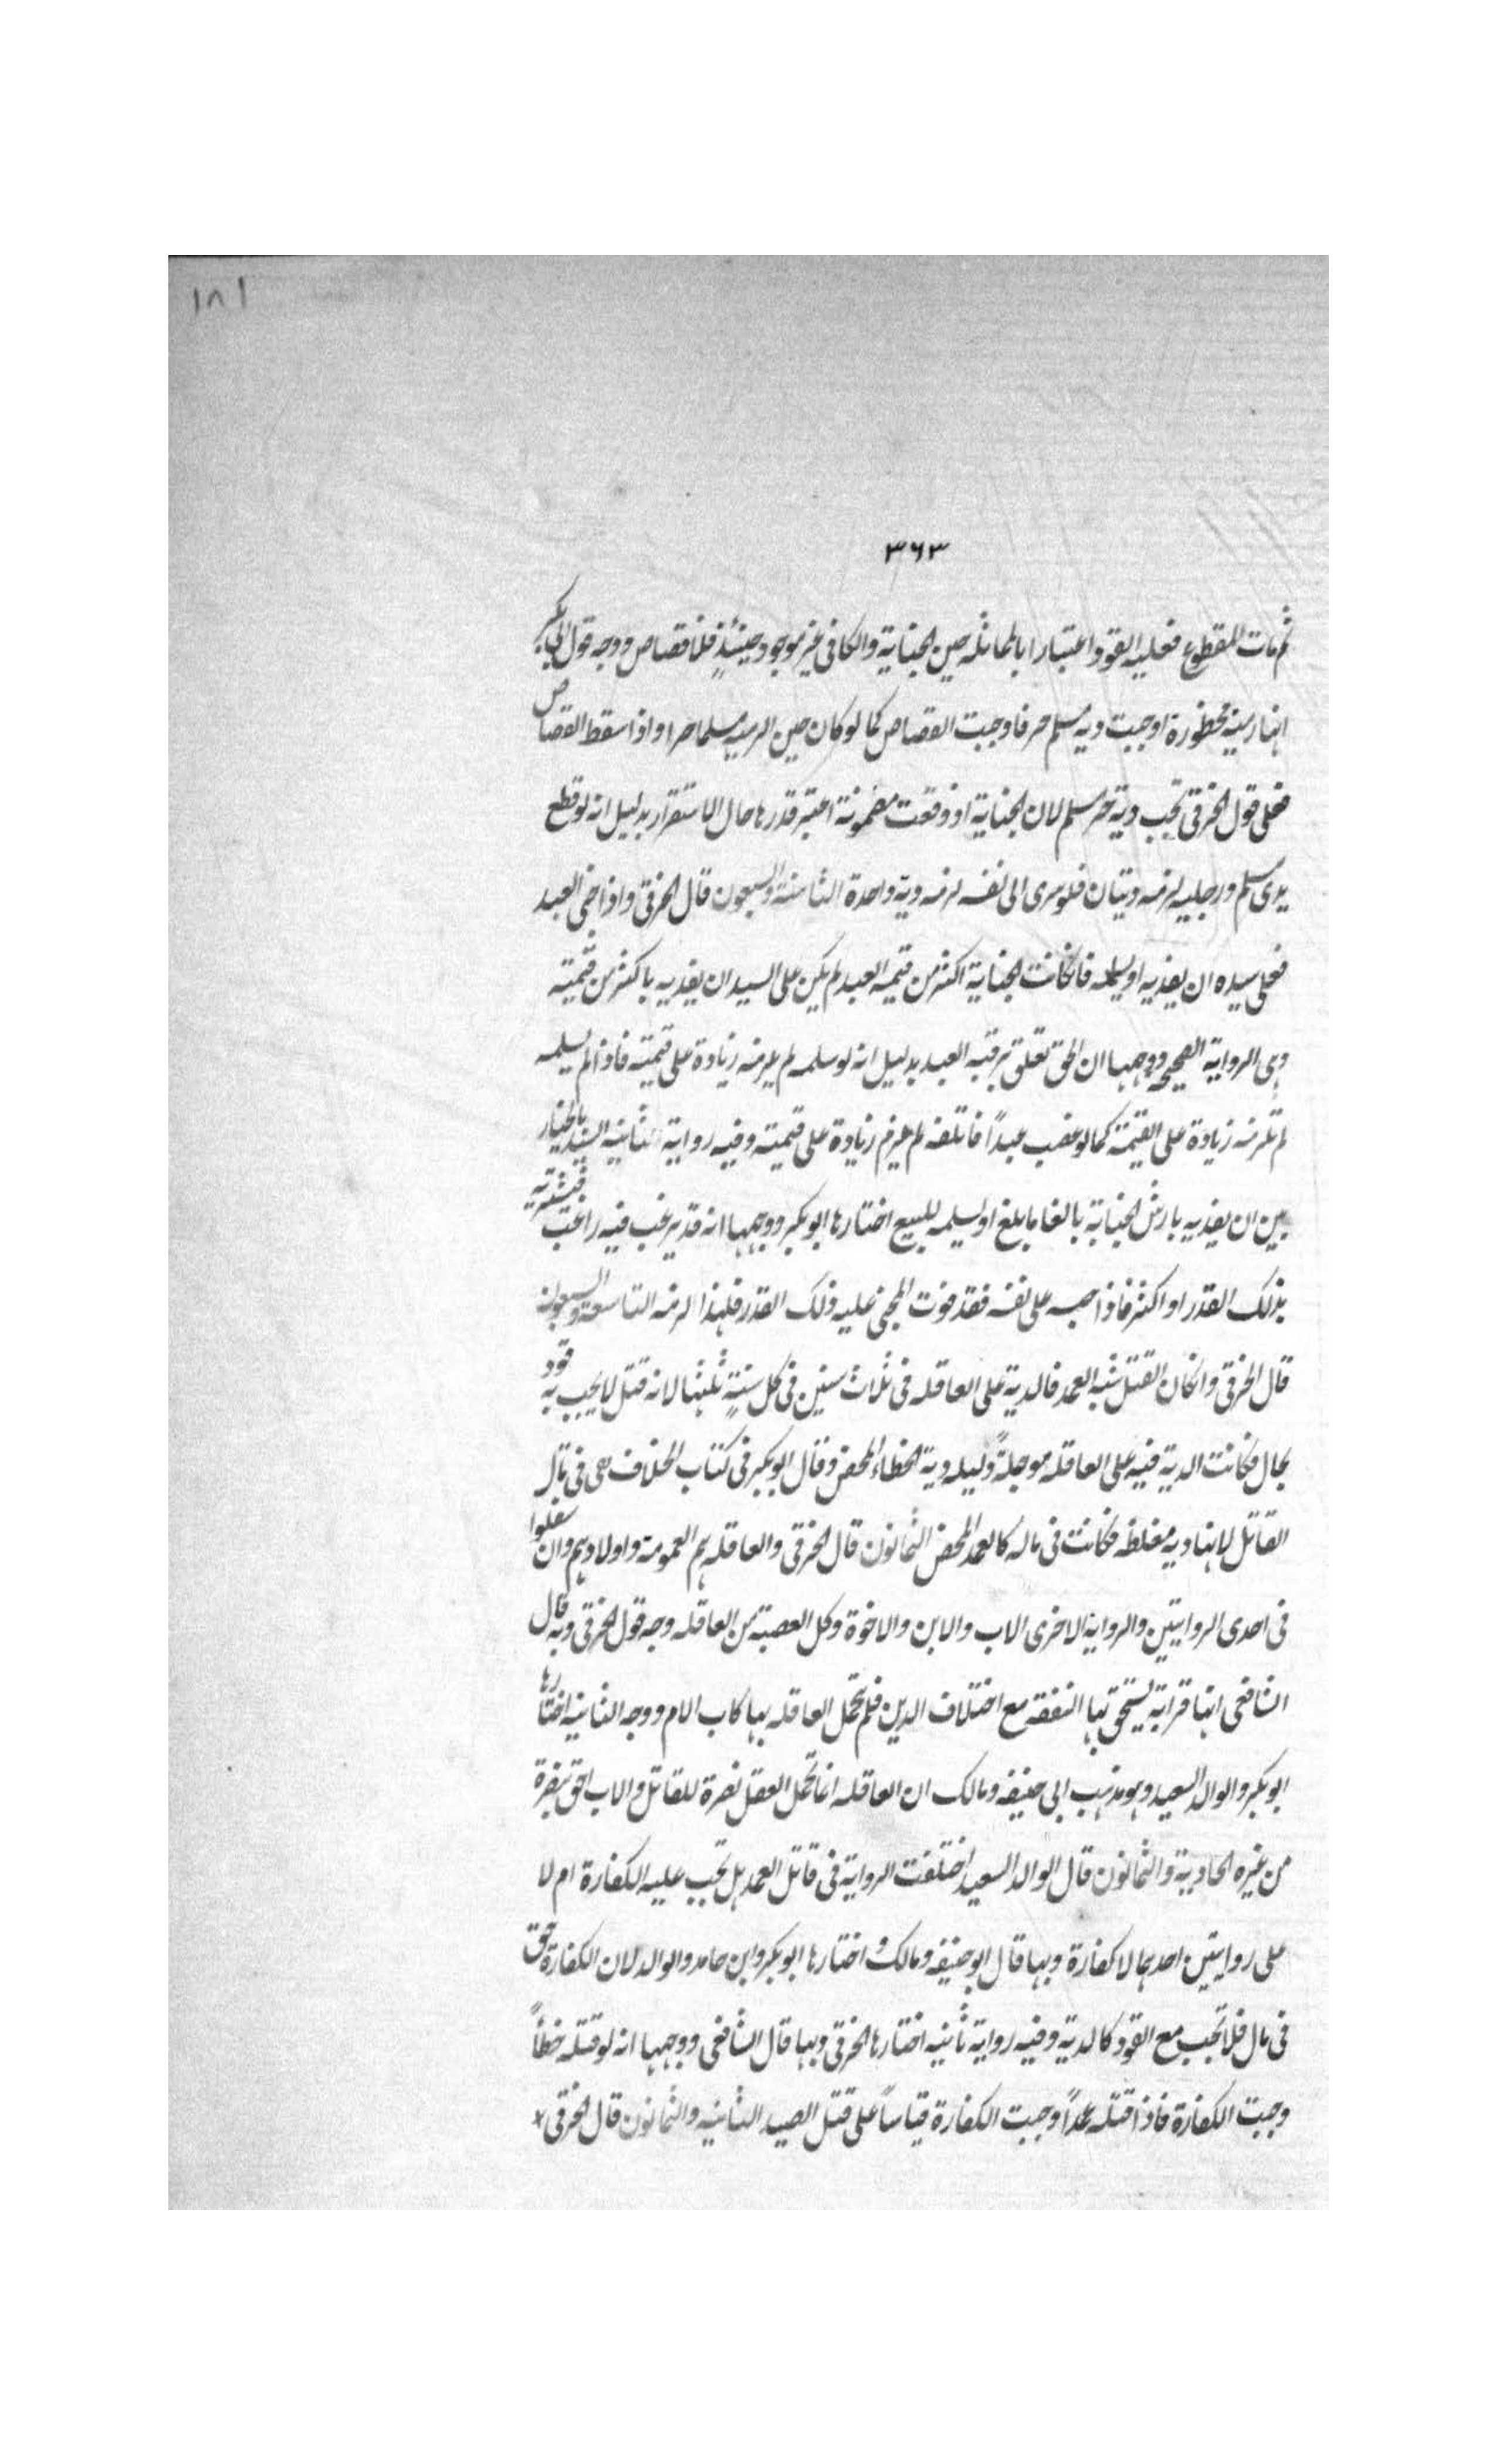 ١٨١
٣٦٣
ثم مات المقطوع فعليه القود اعتبارا بالمماثلة حين الجناية والتكافى غير موجود حينئذٍ فلا قصاص ووجه قول ابى بكر
انها رمية محظورة اوجبت دية مسلم حر فاوجبت القصاص كما لو كان حين الرمية مسلما حرا واذا سقط القصاص
فعلى قول الخرقى تجب دية حر مسلم لان الجناية اذ وقعت مضمونة اعتبر قدرها حال الاستقرار بدليل انه لو قطع
يدى مسلم ورجليه لزمه ديتان فلو سرى الى نفسه لزمه دية واحدة الثامنة والسبعون قال الخرقى واذا جنى العبد
فعلى سيده ان يفديه او يسلمه فان كانت الجناية اكثر من قيمة العبد لم يكن على السيد ان يفديه باكثر من قيمته
وهى الرواية الصحيحة ووجهها ان الحق تعلق برقبة العبد بدليل انه لو سلمه لم يلزمه زيادة على قيمته فاذا لم يسلمه
لم تلزمه زيادة على القيمة كما لو غصب عبداً فاتلفه لم يلزم زيادة على قيمته وفيه رواية ثانية السيد بالخيار
بين ان يفديه بارش الجناية بالغا ما بلغ او يسلمه للبيع اختارها ابو بكر ووجهها انه قد يرغب فيه راغب فيشتريه
بذلك القدر او اكثر فاذا حبسه على نفسه فقد فوت المجنى عليه ذلك القدر فلهذا لزمه التاسعة والسبعون
قال الخرقى وان كان القتل شبه العمد فالدية على العاقلة فى ثلاث سنين فى كل سنةٍ ثلثها لانه قتل لا يجب به قود
بحال فكانت الدية فيه على العاقلة موجلةً دليله دية الخطاء المحض وقال ابو بكر فى كتاب الخلاف هى فى مال
القاتل لانها دية مغلظة فكانت فى ماله كالعمد المحض الثمانون قال الخرقى والعاقلة هم العمومة واولادهم وان سفلوا
فى احدى الروايتين والرواية الاخرى الاب والابن والاخوة وكل العصبة من العاقلة وجه قول الخرقى وبه قال
الشافعى انها قرابة يستحق بها النفقة مع اختلاف الدين فلم تحمل العاقلة بها كاب الام ووجه الثانية اختارها
ابو بكر والوالد السعيد وهو مذهب ابى حنيفة ومالك ان العاقلة انما تحمل العقل نصرة للقاتل والاب احق بنصرة
من غيره الحادية والثمانون قال الوالد السعيد اختلفت الرواية فى قاتل العمد هل تجب عليه الكفارة ام لا
على روايتين احدهما لا كفارة وبها قال ابو حنيفة ومالك واختارها ابو بكر وابن حامد والوالد لان الكفارة حق
فى مال فلا تجب مع القود كالدية وفيه رواية ثانية اختارها الخرقى وبها قال الشافعى ووجهها انه لو قتله خطأً
وجبت الكفارة فاذا قتله عمداً وجبت الكفارة قياساً على قتل الصيد الثانية والثمانون قال الخرقى